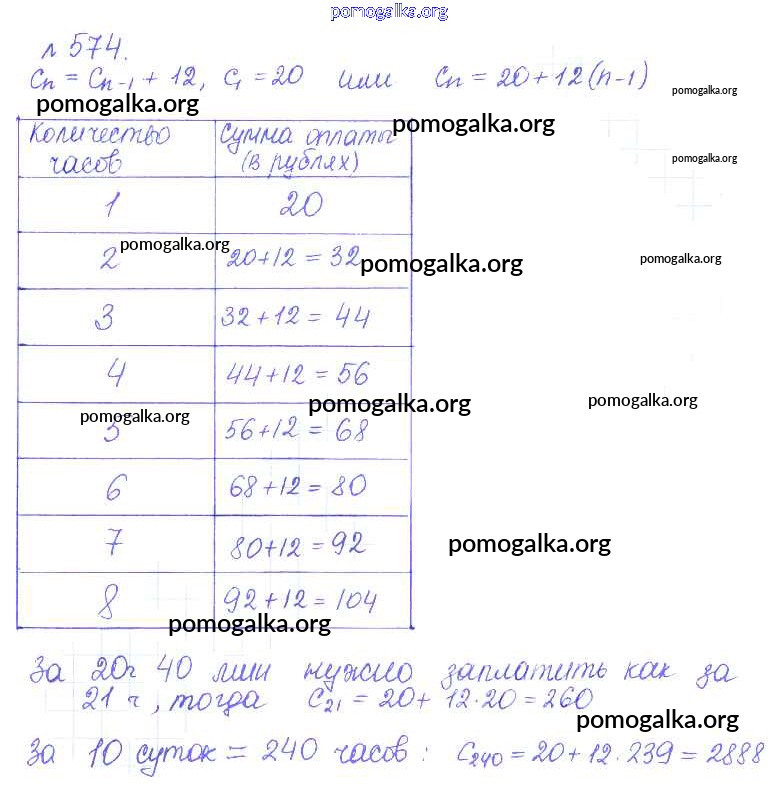 pomogalka.org
№ 574.
Cn = Cn-1 + 12, C1 = 20 или Cn = 20 + 12(n-1)
pomogalka.org
pomogalka.org
pomogalka.org
Количество часов | Сумма оплаты (в рублях)
pomogalka.org
1 | 20
pomogalka.org
2 | 20+12 = 32
pomogalka.org
pomogalka.org
3 | 32+12 = 44
4 | 44+12 = 56
pomogalka.org
pomogalka.org
pomogalka.org
5 | 56+12 = 68
6 | 68+12 = 80
7 | 80+12 = 92
pomogalka.org
8 | 92+12 = 104
pomogalka.org
За 20ч 40 мин нужно заплатить как за
21 ч, тогда C21 = 20+ 12·20 = 260
pomogalka.org
За 10 суток = 240 часов: C240 = 20+12·239 = 2888